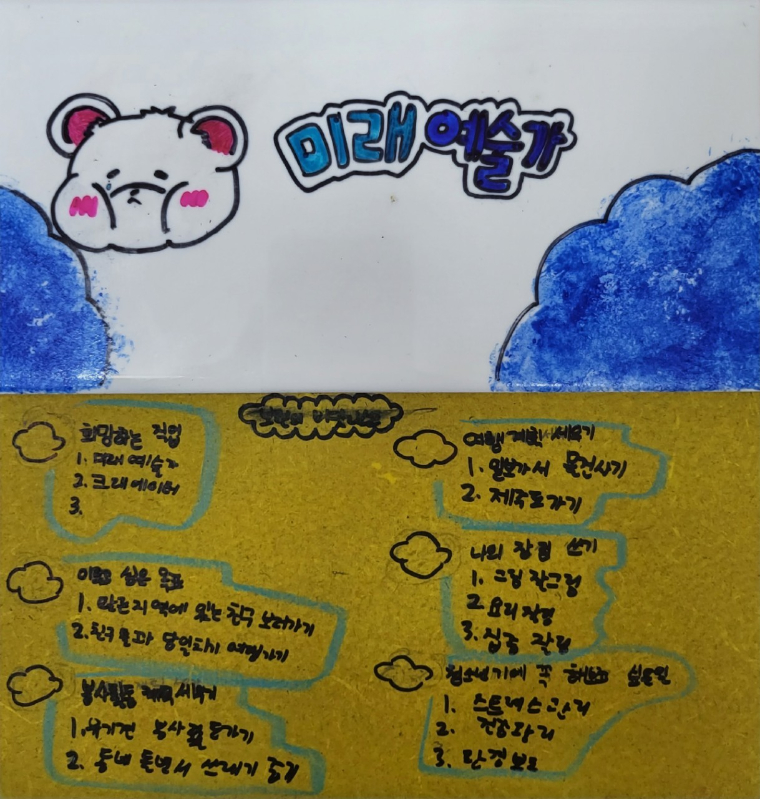 미래 예술가
희망하는 직업
1. 미래 예술가
2. 크리에이터
3.
이루고 싶은 목표
1. 다른지역에 있는 친구 보러가기
2. 친구들과 당일치기 여행가기
봉사활동 계획 세우기
1. 유기견 봉사활동가기
2. 동네 돌면서 쓰레기 줍기
여행 계획 세우기
1. 일본가서 물건사기
2. 제주도가기
나의 장점 쓰기
1. 그림 잘그림
2. 요리 잘함
3. 집중 잘함
청소년기에 꼭 해보고 싶은일
1. 스트레스관리
2. 건강관리
3. 안경